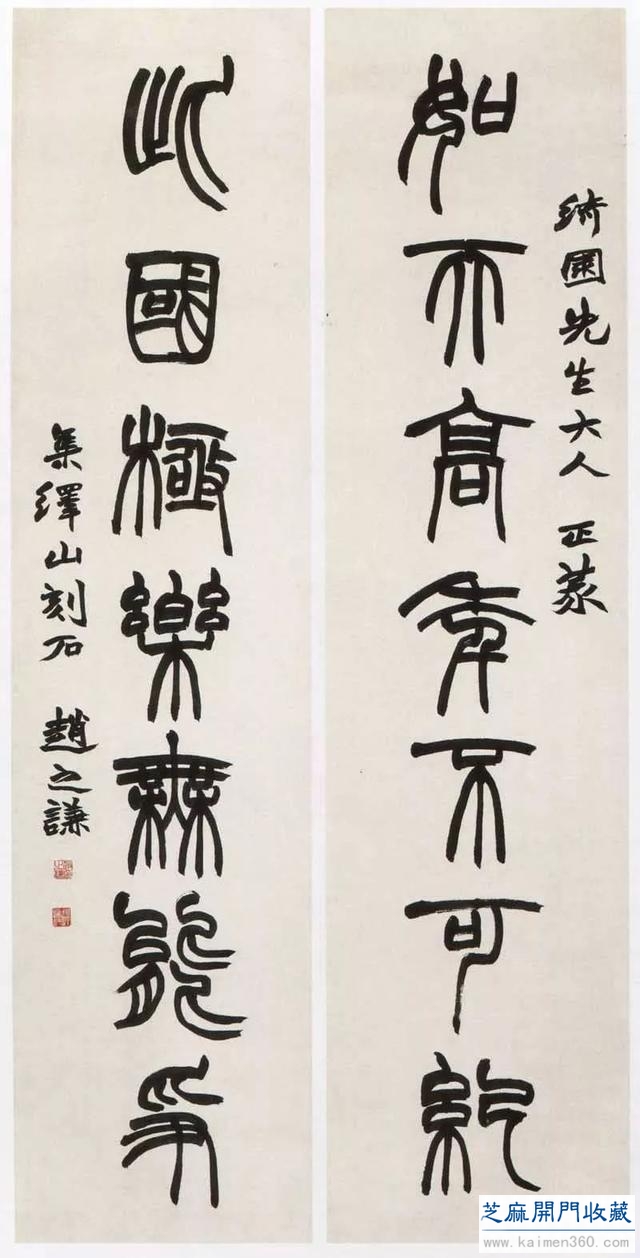 綺園先生大人 正篆
如天高年不可紀
此國極樂無能爭
集繹山刻石 趙之謙
芝麻開門收藏
www.kaimen360.com